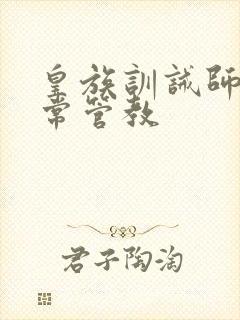 皇族訓誡師
常管教
君子陶淘